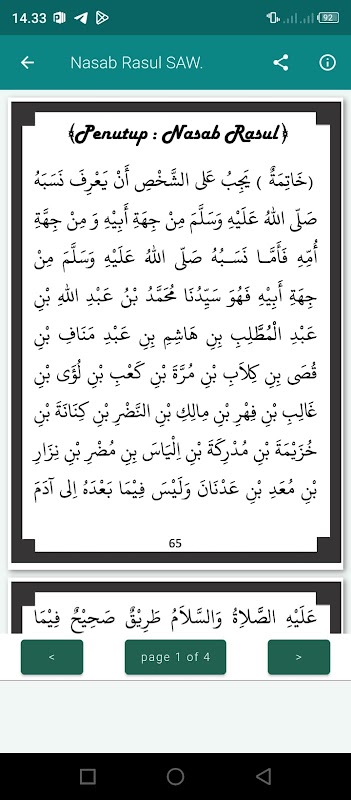 14.33
92
Nasab Rasul SAW.
﴾Penutup : Nasab Rasul﴿
(خَاتِمَةٌ ) يَجِبُ عَلَى الشَّخْصِ أَنْ يَعْرِفَ نَسَبَهُ
صَلَّى اللهُ عَلَيْهِ وَسَلَّمَ مِنْ جِهَةِ أَبِيْهِ وَ مِنْ جِهَّةِ
أُمِّهِ فَأَمَّـا نَسَـبُهُ صَلَّى اللهُ عَلَيْهِ وَسَلَّمَ مِنْ
جِهَةِ أَبِيْهِ فَهُوَ سَيِّدُنَا مُحَمَّدُ بْنُ عَبْدِ اللهِ بْنِ
عَبْدِ الْمُطَّلِبِ بِنِ هَاشِمِ بِنِ عَبْدِ مَنَافِ بْنِ
قُصَى بِنِ كِلاَبِ بْنِ مُرَّةَ بْنِ كَعْبِ بْنِ لُؤَى بْنِ
غَالِبِ بْنِ فِهْرِ بْنِ مِالِكِ بْنِ النَّضْرِ بْنِ كِنَانَةَ بْنِ
خُزَيْمَةَ بْنِ مُدْرِكَةَ بْنِ اِلْيَاسَ بِنِ مُضْرِ بْنِ نِزَارِ
بْنِ مُعَدِ بْنِ عَدْنَانَ وَلَيْسَ فِيْمَا بَعْدَهُ اِلى آدَمَ
65
عَلَيْهِ الصَّلاَةُ وَالسَّلاَمُ طَرِيْقٌ صَحِيْحٌ فِيْمَا
< page 1 of 4 >